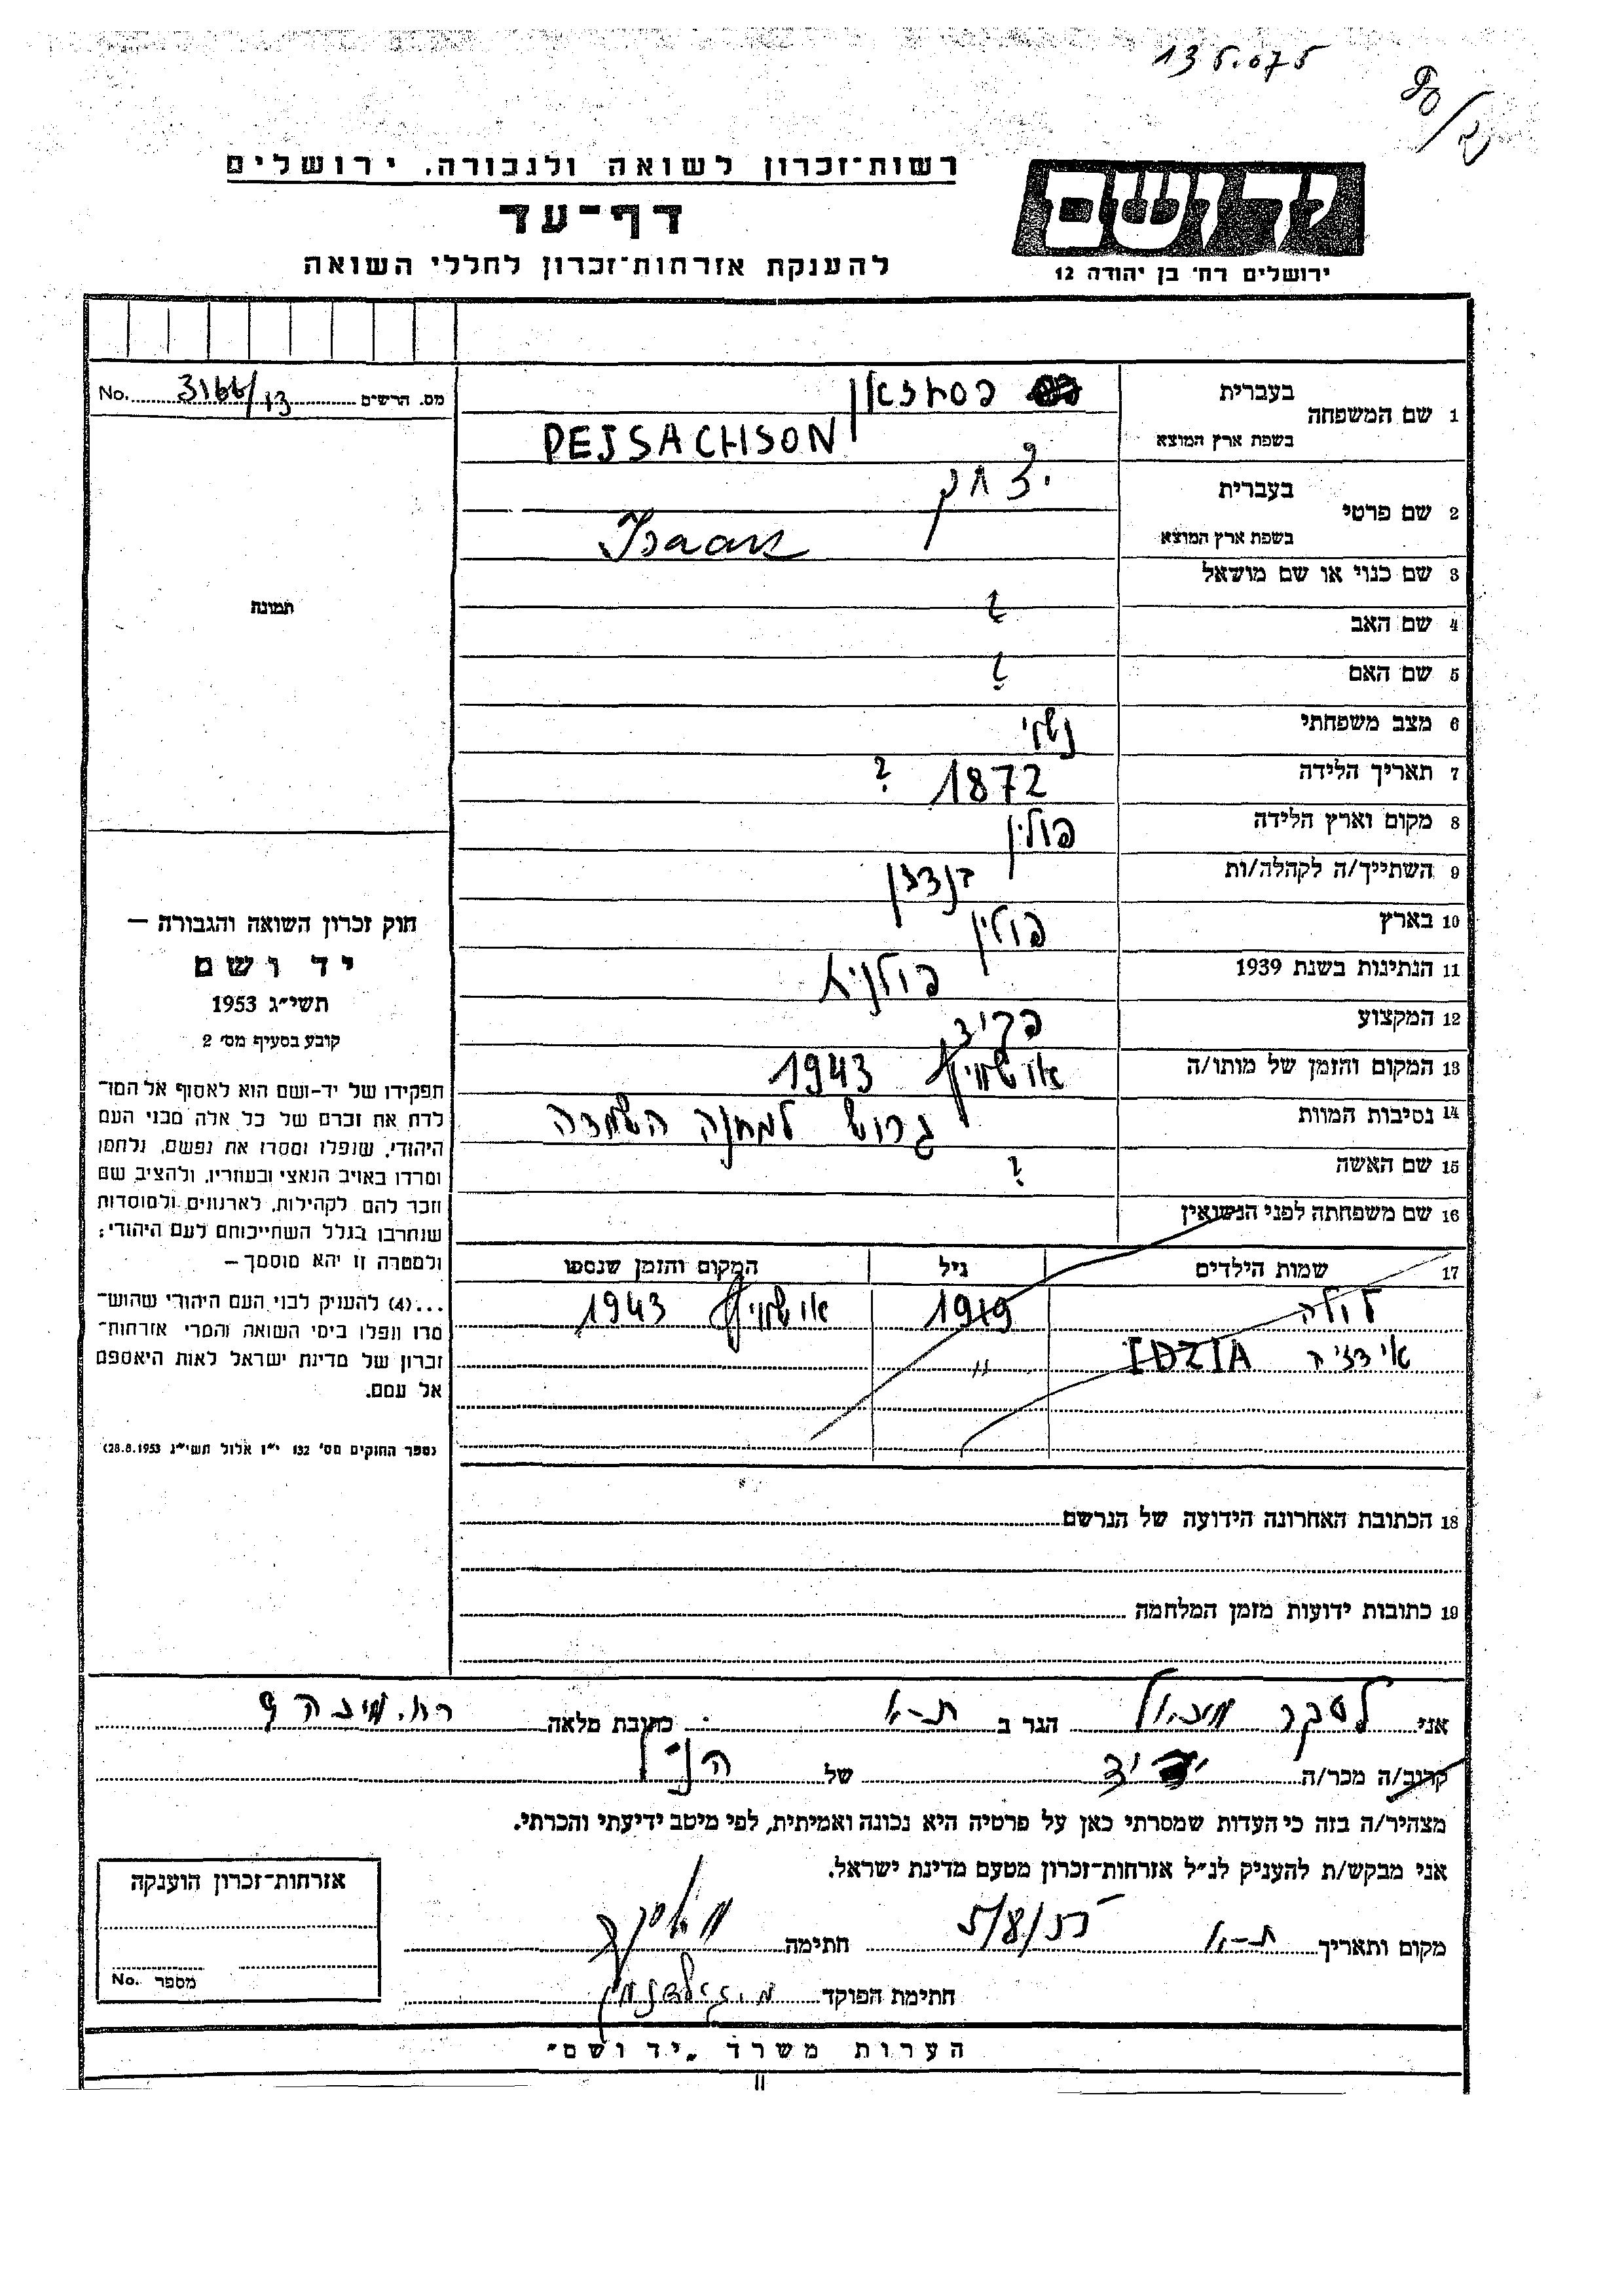 135.075
רשות־זכרון לשואה ולגבורה, ירושלים
דף־עד
להענקת אזרחות־זכרון לחללי השואה
יד ושם
ירושלים רח' בן יהודה 12
No. 3166/13 מס. הרשים
תמונה
1 שם המשפחה
בעברית פסחזאון
בשפת ארץ המוצא PEJSACHSON
2 שם פרטי
בעברית יצחק
בשפת ארץ המוצא Isaak
3 שם כנוי או שם מושאל
4 שם האב ?
5 שם האם ?
6 מצב משפחתי נשוי
7 תאריך הלידה 1872 ?
8 מקום וארץ הלידה פולין
9 השתייך/ה לקהלה/ות בנדזין
10 בארץ פולין
11 הנתינות בשנת 1939 פולניא
12 המקצוע פקיד
13 המקום והזמן של מותו/ה אושוויץ 1943
14 נסיבות המוות גרוש למחנה השמדה
15 שם האשה ?
16 שם משפחתה לפני הנשואין
17 שמות הילדים גיל המקום והזמן שנספו
לולה 1919 אושוויץ 1943
אידזיה IDZIA "
18 הכתובת האחרונה הידועה של הנרשם
19 כתובות ידועות מזמן המלחמה
חוק זכרון השואה והגבורה —
יד ושם
תשי״ג 1953
קובע בסעיף מס' 2
תפקידו של יד-ושם הוא לאסוף אל המו־
לדת את זכרם של כל אלה מבני העם
היהודי, שנפלו ומסרו את נפשם, נלחמו
ומרדו באויב הנאצי ובעוזריו, ולהציב שם
וזכר להם לקהילות, לארגונים ולמוסדות
שנחרבו בגלל השתייכותם לעם היהודי;
ולמטרה זו יהא מוסמך —
...(4) להעניק לבני העם היהודי שהוש־
מדו ונפלו בימי השואה והמרי אזרחות־
זכרון של מדינת ישראל לאות היאספם
אל עמם.
(ספר החוקים מס' 132 י״ז אלול תשי״ג 28.8.1953)
אני לסקר הגר ב ת-א כתובת מלאה רח.
קרוב/ה מכר/ה ידיד של הנ״ל
מצהיר/ה בזה כי העדות שמסרתי כאן על פרטיה היא נכונה ואמיתית, לפי מיטב ידיעתי והכרתי.
אני מבקש/ת להעניק לנ״ל אזרחות־זכרון מטעם מדינת ישראל.
מקום ותאריך ת-א חתימה
חתימת הפוקד
אזרחות־זכרון הוענקה
No. מספר
הערות משרד „יד ושם״